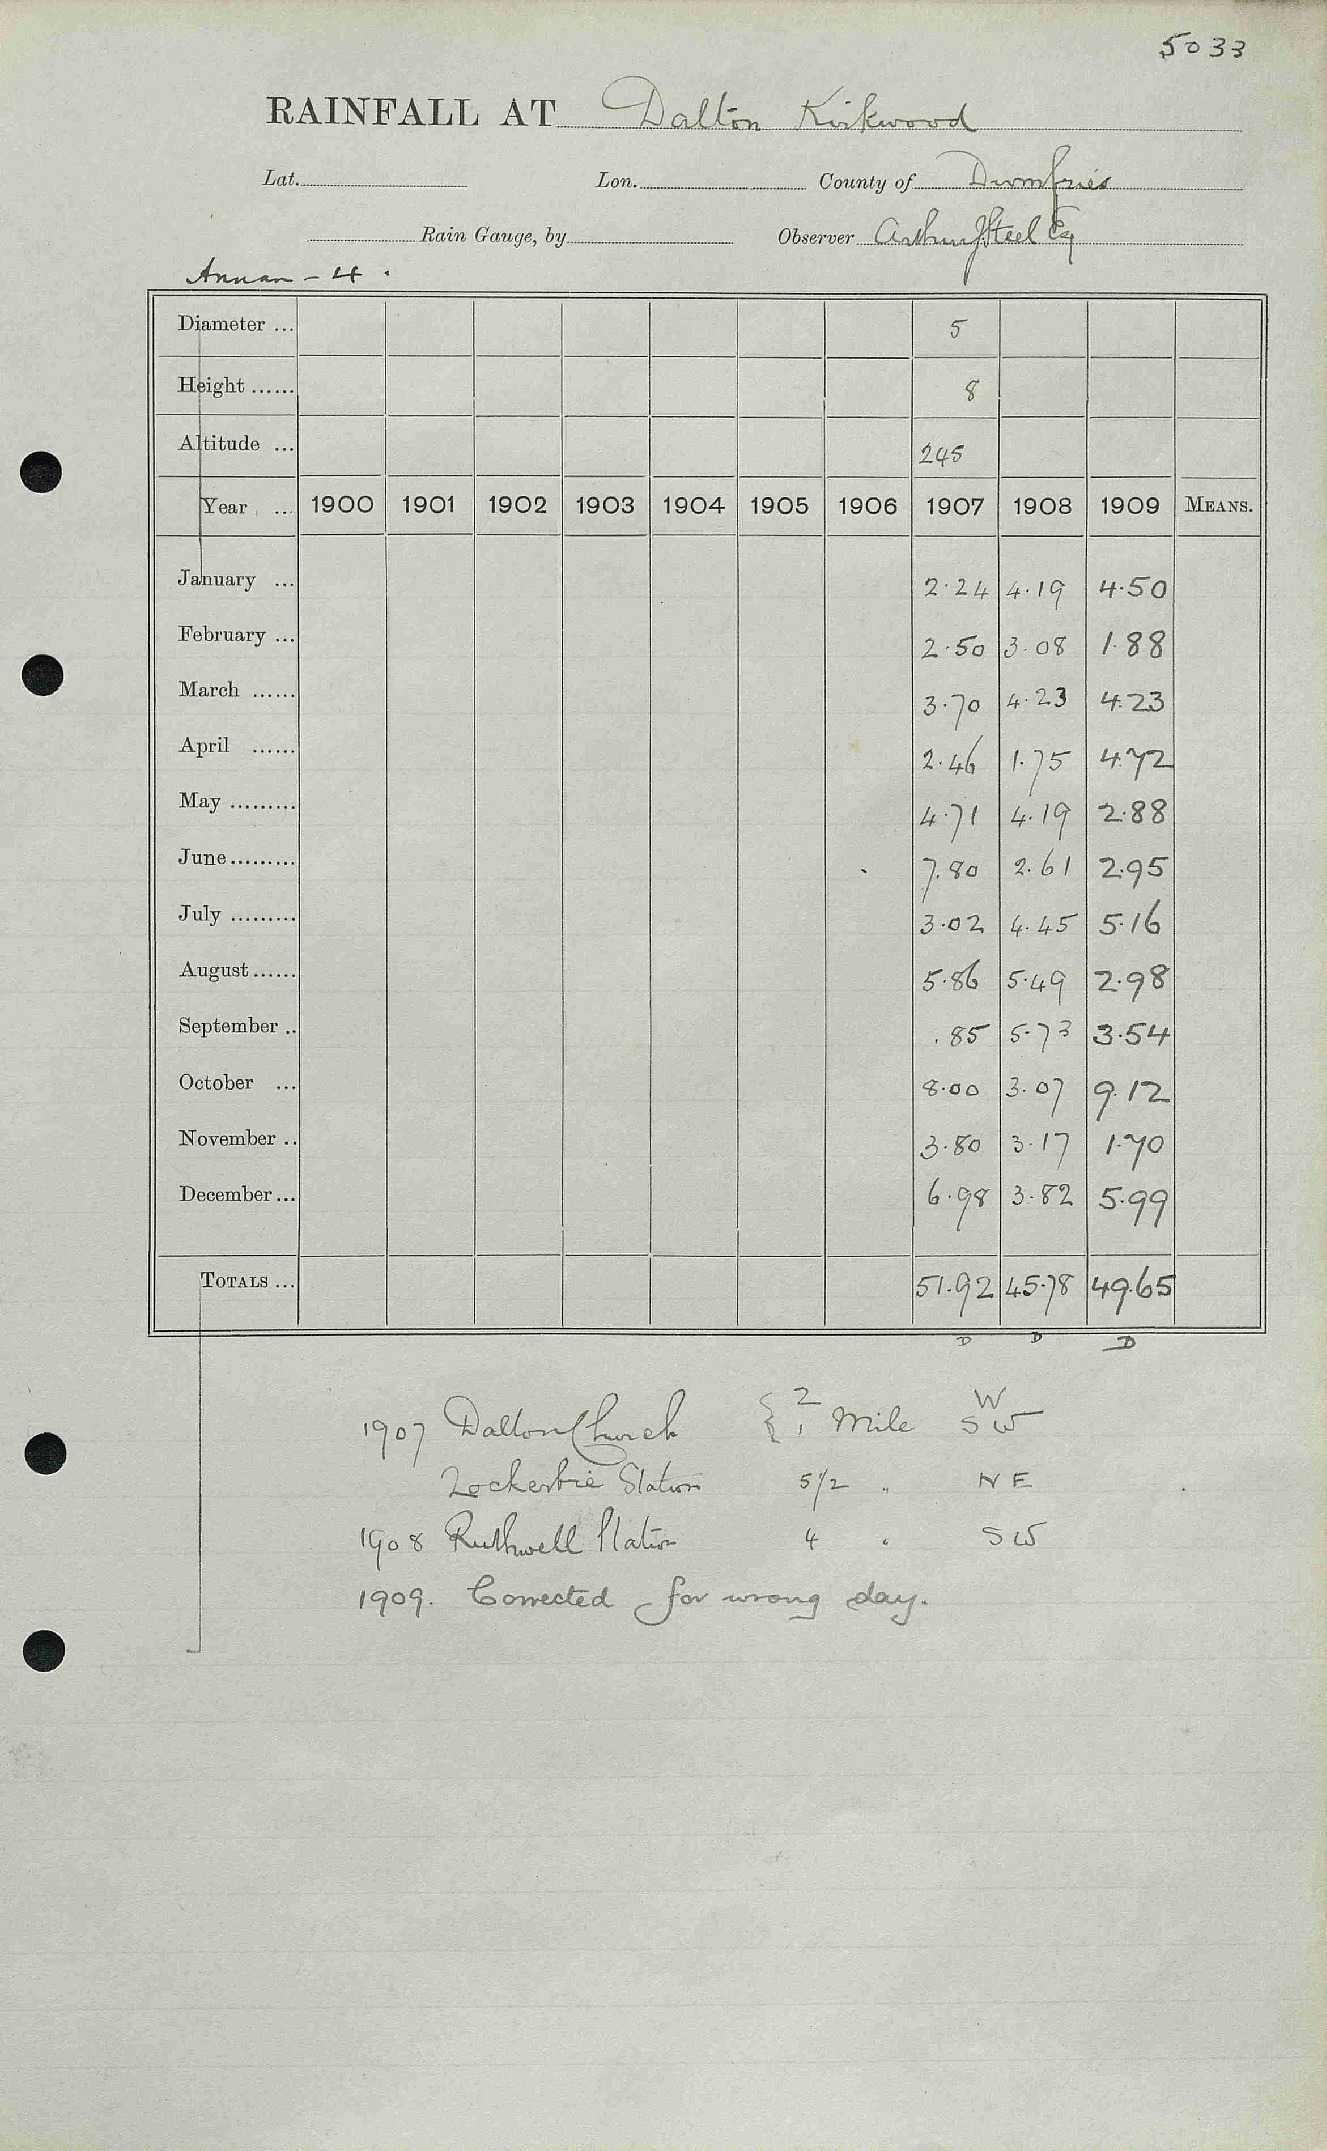 5033
RAINFALL AT Dalton Kirkwood
Lat. Lon. County of Dumfries
Rain Gauge, by Observer Arthur J. Steel Esq
Annan - 4.
Diameter ... 5
Height ...... 8
Altitude ... 245
Year ... 1900 1901 1902 1903 1904 1905 1906 1907 1908 1909 MEANS.
January ... 2.24 4.19 4.50
February ... 2.50 3.08 1.88
March ...... 3.70 4.23 4.23
April ...... 2.46 1.75 4.72
May ......... 4.71 4.19 2.88
June ......... 7.80 2.61 2.95
July ......... 3.02 4.45 5.16
August ...... 5.86 5.49 2.98
September .. .85 5.73 3.54
October ... 8.00 3.07 9.12
November .. 3.80 3.17 1.70
December ... 6.98 3.82 5.99
TOTALS ... 51.92 45.78 49.65
D D D
1907 Dalton Church { 2 W
1 Mile SW
Lockerbie Station 5 1/2 " NE
1908 Ruthwell Station 4 " SW
1909. Corrected for wrong day.